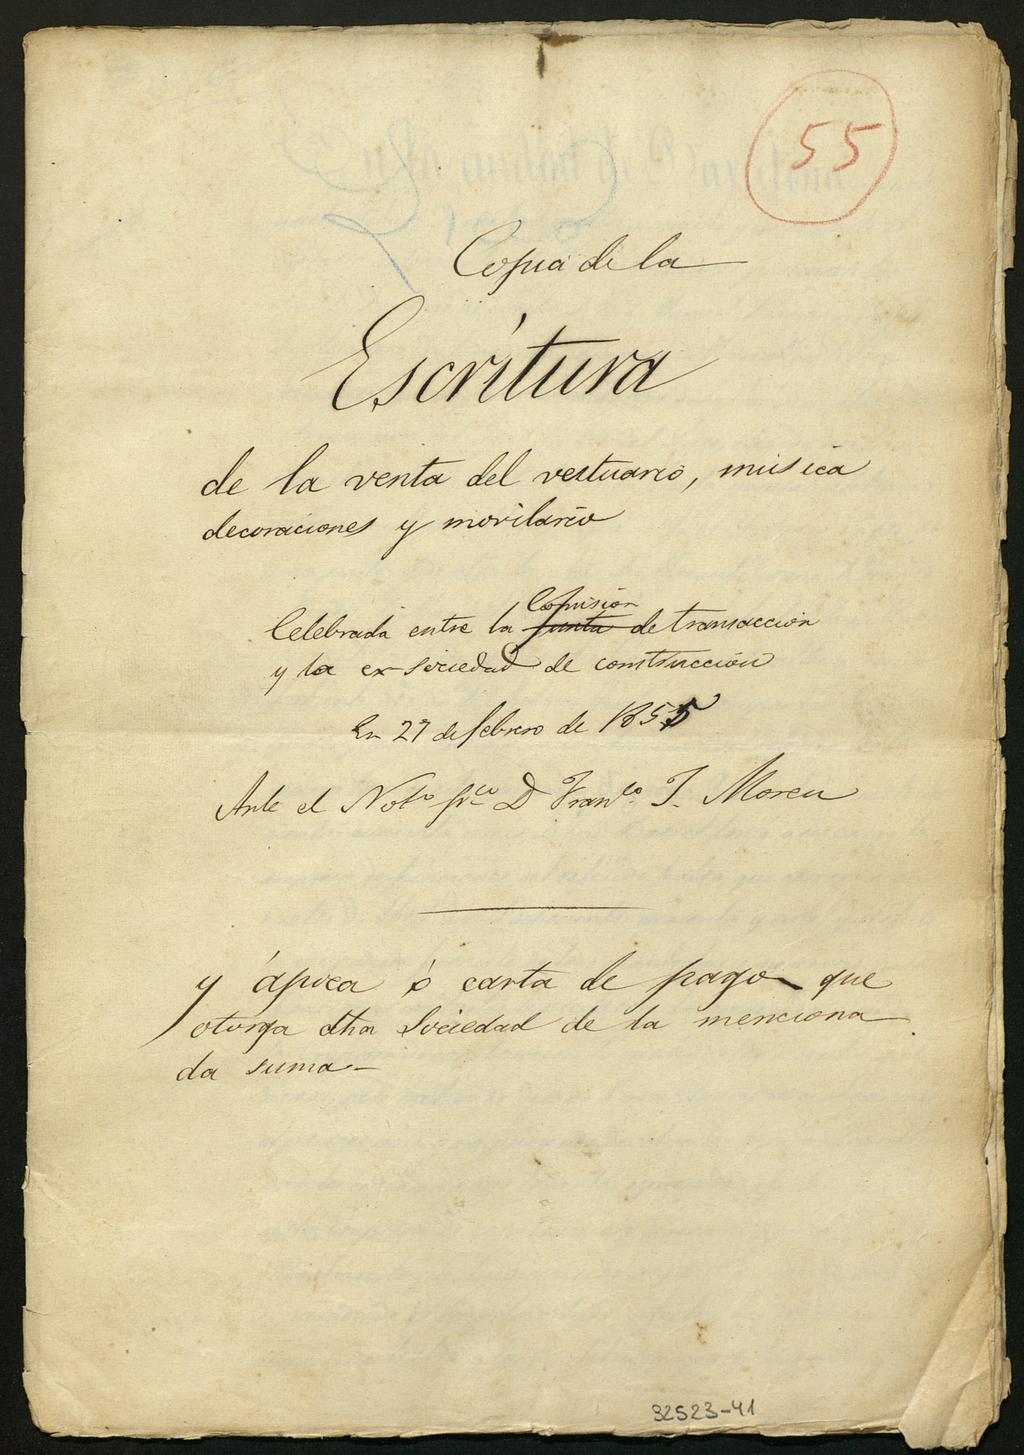 55
Copia de la
Escritura
de la venta del vestuario, música
decoraciones y movilario
Comisión
Celebrada entre la Junta de transacción
y la ex-sociedad de construcción
En 27 de febrero de 1855
Ante el Not.º p.co D Fran.co J. Moreu
y ápoca ó carta de pago que
otorga dha Sociedad de la menciona
da suma-
32523-41